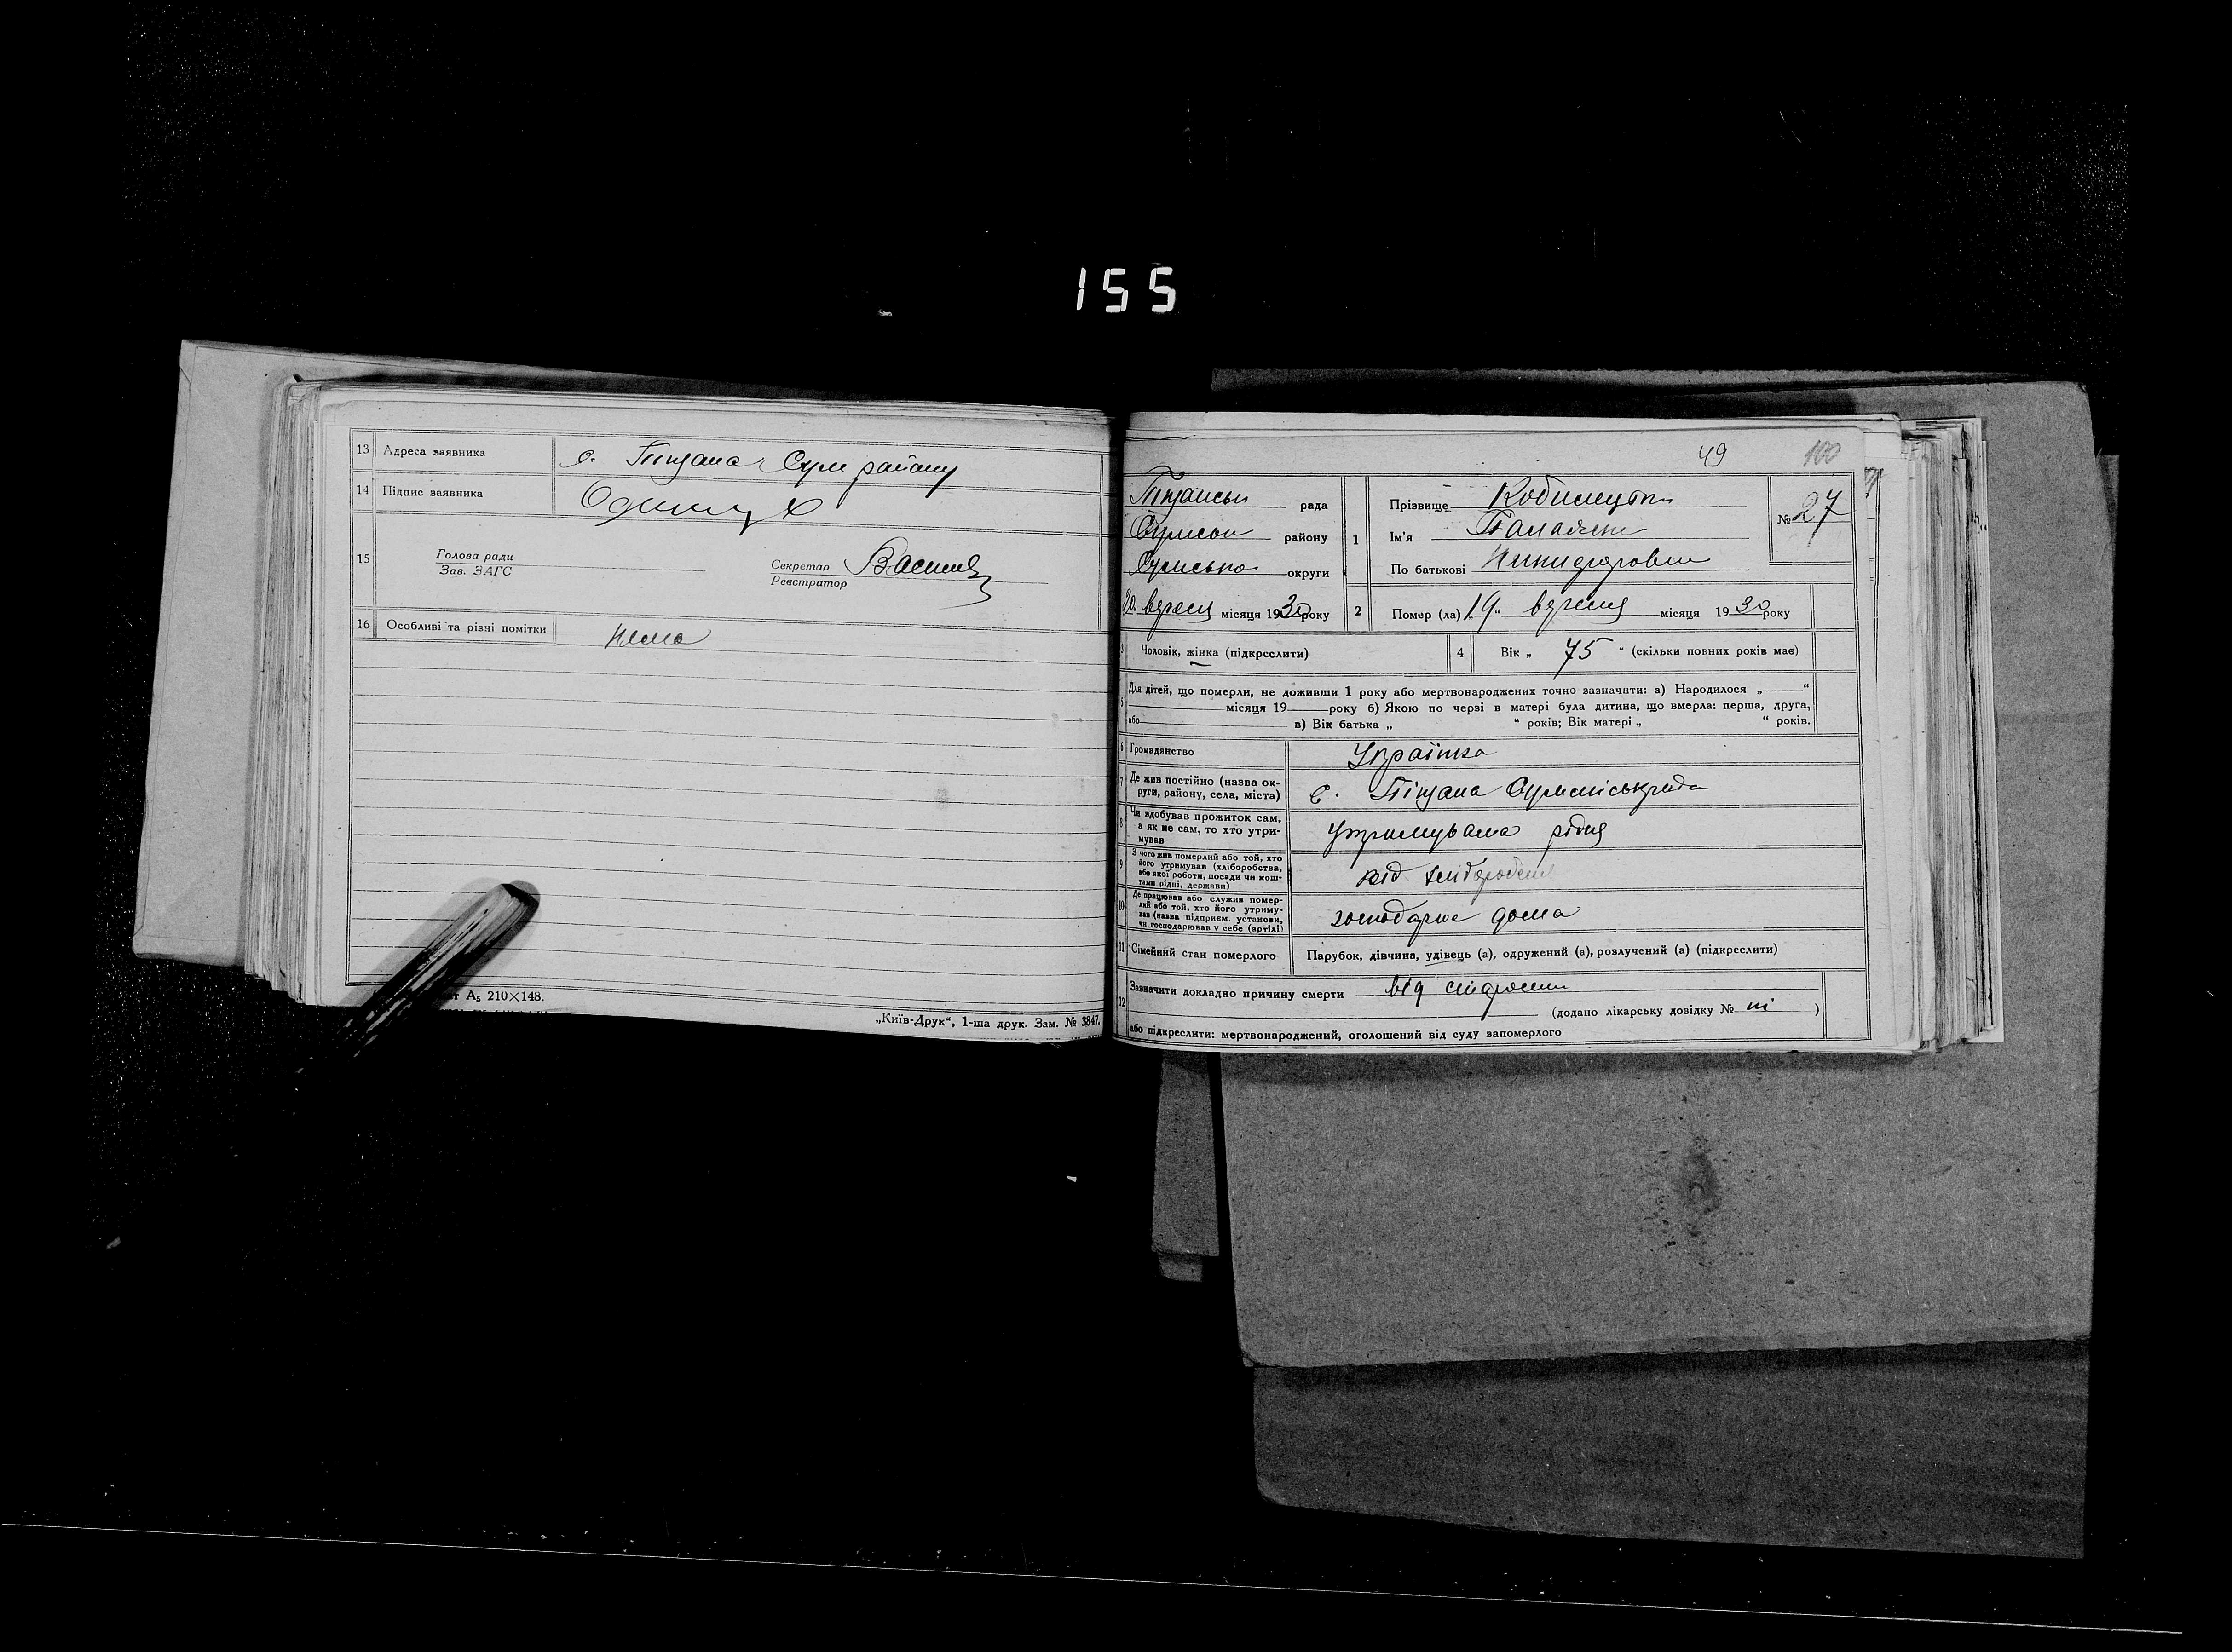 155
13 Адреса заявника с. Піщана Сум району
14 Підпис заявника
15 Голова ради
Зав. ЗАГС
Секретар
Реєстратор
16 Особливі та різні помітки Нема
А₅ 210×148.
„Київ-Друк“, 1-ша друк. Зам. № 3847.
49 100
рада
району
округи
20 вересня місяця 1930 року
1 Прізвище
Ім'я
По батькові
№ 27
2 Помер (ла) „19“ вересня місяця 1930 року
3 Чоловік, жінка (підкреслити)
4 Вік „ 75 “ (скільки повних років має)
5 Для дітей, що померли, не доживши 1 року або мертвонароджених точно зазначити: а) Народилося „ “
місяця 19 року б) Якою по черзі в матері була дитина, що вмерла: перша, друга,
або в) Вік батька „ “ років; Вік матері „ “ років.
6 Громадянство Українка
7 Де жив постійно (назва ок-
руги, району, села, міста) с. Піщана
8 Чи здобував прожиток сам,
а як не сам, то хто утри-
мував утримувала рідня
9 З чого жив померлий або той, хто
його утримував (хліборобства,
або якої роботи, посади чи кош-
тами рідні, держави) від
10 Де працював або служив помер-
лий або той, хто його утриму-
вав (назва підприєм. установи,
чи господарював у себе (артілі) дома
11 Сімейний стан померлого Парубок, дівчина, удівець (а), одружений (а), розлучений (а) (підкреслити)
12 Зазначити докладно причину смерти від старости
(додано лікарську довідку № ні )
або підкреслити: мертвонароджений, оголошений від суду запомерлого